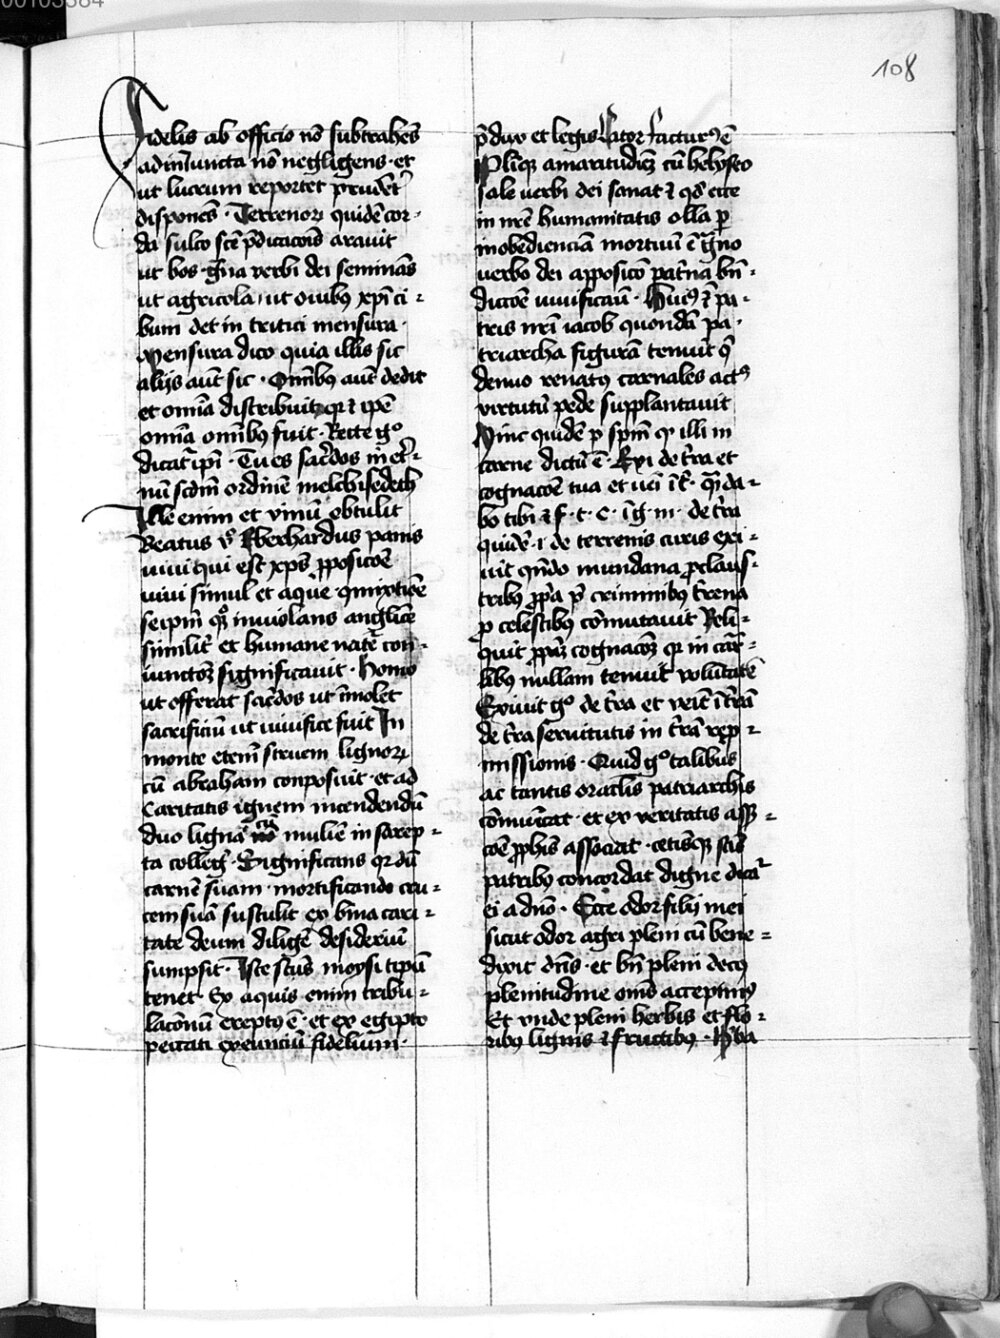 00103384
108
Fidelis ab officio nō subtrahēs
ad iniuncta nō negligens · et
ut lucrum reportet prudēt̉
disponēs · Terrenoꝝ quidē cor-
da sulco scē p̄dicacōis arauit
ut bos · g̃na verbi dei seminās
ut agricola ut ouibꝰ xp̄i ci-
bum det in tritici mensura ·
Mensura dico quia illis sic
alijs aut̄ sic · Om̄ibꝰ aut̄ dedit
et om̄ia distribuit qꝛ ⁊ ip̄e
om̄ia om̄ibꝰ fuit · Recte gͦ
dicat̉ ip̄i · Tu es sac̉dos in et̉-
nū scdm̄ ordinē melchisedech
Ille enim et vinū obtulit
Beatus v̉ Eberhardus panis
viui qui est xp̄s p̱posicōe
vini simul et aque
seip̄m inuiolans anglice
simil̉r et humane nat̉e con-
iunctōꝫ significauit · Homo
ut offerat sac̉dos ut īmolet
sacrificiū ut viuifice fuit In
monte eten̄ struem lignoꝝ
cū abraham conposuit · et ad
Caritatis ignem incendendū
duo ligna cū muliē in sarep-
ta colleg̉ · Significans qꝛ dū
carnē suam · mortificando cru-
cem suā sustulit ex bina cari-
tate deum diligē desideriū
sumpsit · Iste sctūs moysi tipū
tenet Ex aquis enim tribu-
lacōnū exeptꝰ ē · et ex egipto
pecc̄ati exeunciū fidelium ·
p̄ dux et legis Lator factur9 ē
Pl̄icꝫ amaritudiēꝫ cū helyseo
sale verbi dei sanat ⁊ qd̄ ecce
in nrē humanitatis olla p̱
inobedienciā mortuū ē g̃no
verbo dei apposico pat̉na bn̄-
diccōe viuificauit̄ · Huiꝰ ⁊ pa-
tris nrī iacob quondā pa-
triarcha figurā tenuit q̄
denuo renatꝰ carnales actꝰ
virtutū pede supplantauit
Hinc quidē p̱ spm̄ qꝛ illi in
carne dictū ē · Exi de t̉ra et
cognacōe tua et ueī ī t̉ · q̄ da-
bo tibi ⁊ f · t · c · ī g̃ · m · de t̉ra
quidē · i · de terrenis curis exi-
uit qn̄do mundana p̱ claus-
tribꝰ p̱pa p̱ criminibꝰ t̉rena
p̱ celestibꝰ cōmutauit Reli-
quit p̱am̄ cognacōꝫ qꝛ in car̄-
libꝰ nullam tenuit voluntatē
Exiuit gͦ de t̉ra et veīt ī t̉rā
de t̉ra seruitutis in t̉rā rep̱-
missionis · Quid gͦ talibus
ac tantis oraclis patriarchis
cōmuīcat · et ex veritatis ass̄-
coē p̱phis associat · cetisqꝫ sc̄is
patribꝰ concordat digne dicat̉
ei a dnō · Ecce odor filij mei
sicut odor agri pleni cū bene-
dixit dn̄s · et bn̄ pleni de cꝰ
plenitudine om̄s accepimꝰ
Et vnde pleni herbis et flo-
ribꝰ lignis ⁊ fructibꝰ · Hba